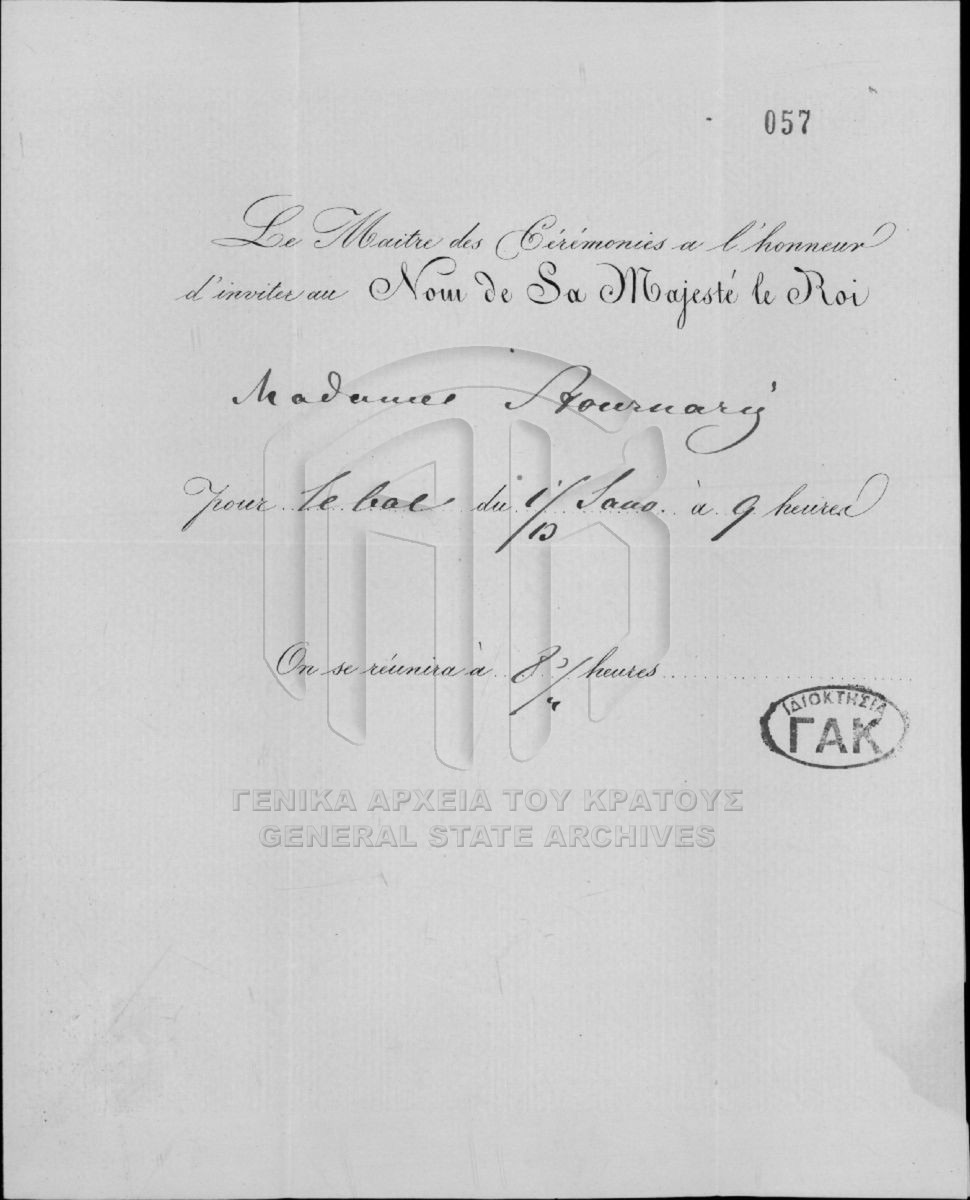 057
Le Maitre des Cérémonies a l'honneur
d'inviter au Nom de Sa Majesté le Roi
Madame Stournari
pour le bal du 1/13 à 9 heures
On se réunira à 8 1/2 heures
ΙΔΙΟΚΤΗΣΙΑ
ΓΑΚ
ΓΕΝΙΚΑ ΑΡΧΕΙΑ ΤΟΥ ΚΡΑΤΟΥΣ
GENERAL STATE ARCHIVES